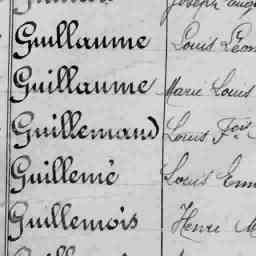 Joseph Aug
Guillaume Louis Léon
Guillaume Marie Louis
Guillemand Louis Fois
Guillemé Louis
Guillemois Henri M